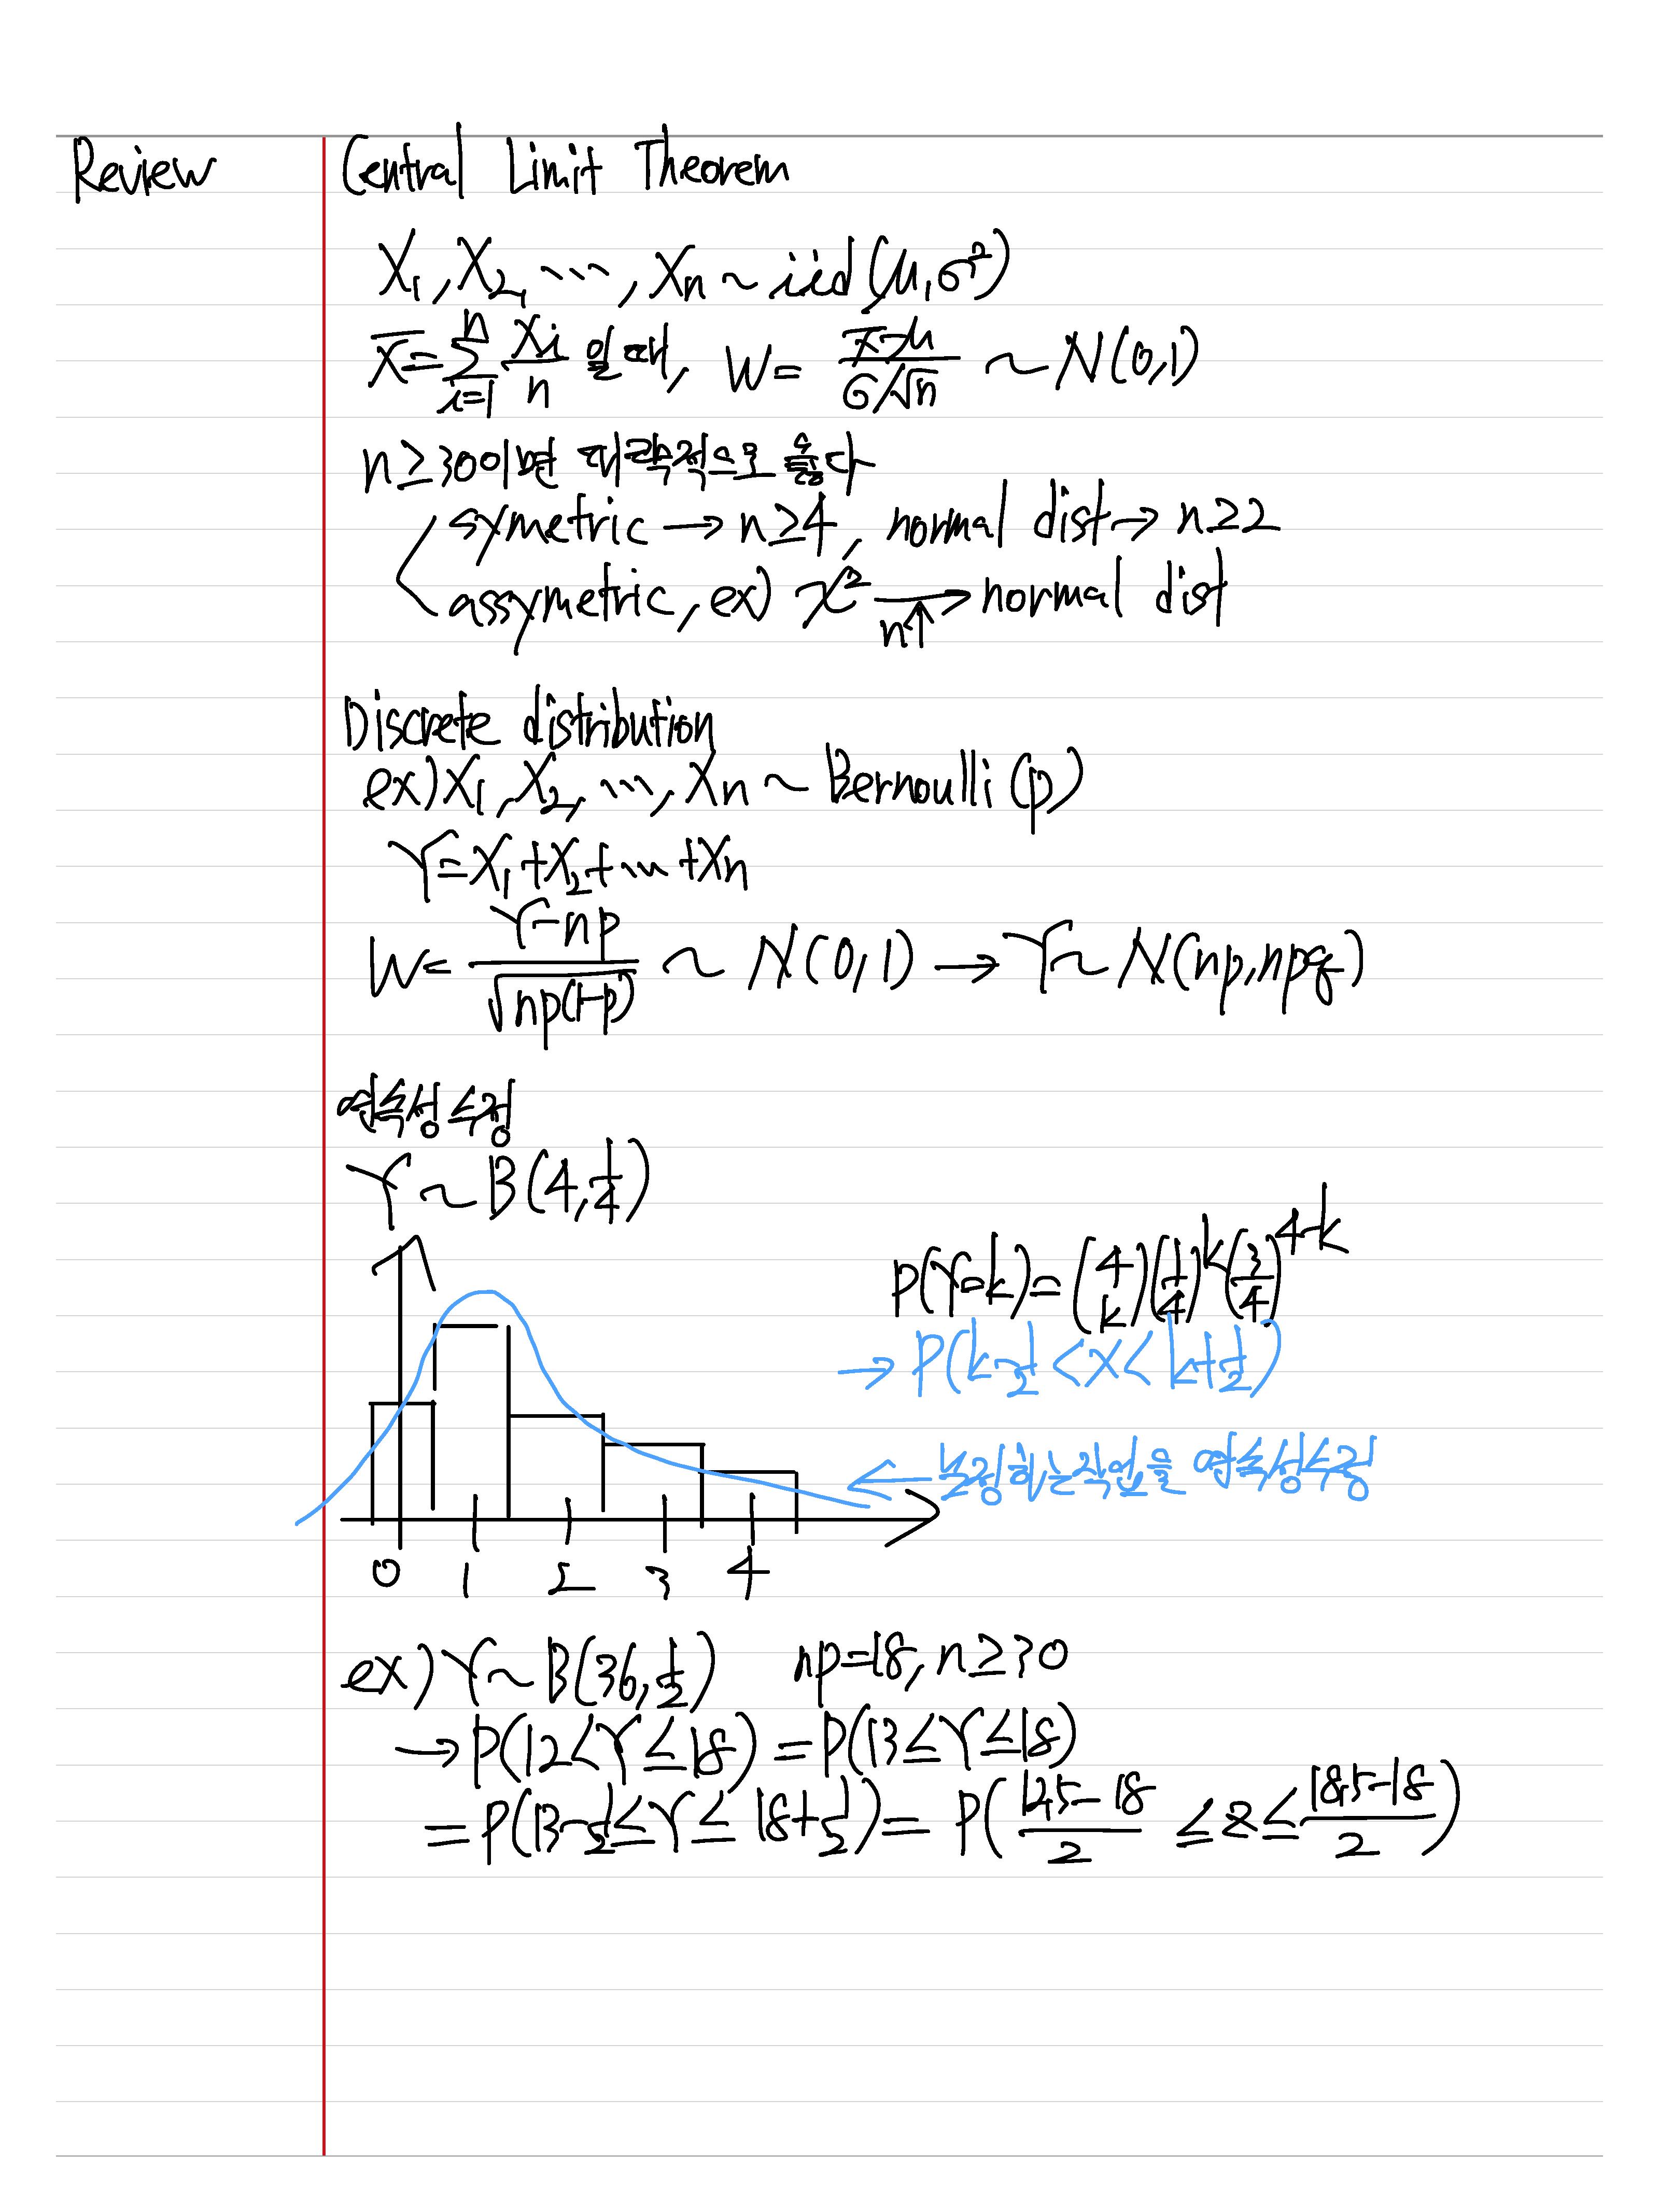 Review
Central Limit Theorem
X₁, X₂, ⋯, Xn ~ iid(μ, σ²)
X̅ = ∑_{i=1}^{n} Xi/n 일 때, W = (x̅-μ)/(σ/√n) ~ N(0,1)
n≥30이면 대략적으로 옳다
symetric → n≥4, normal dist → n≥2
assymetric, ex) χ² →(n↑) normal dist
Discrete distribution
ex) X₁, X₂, ⋯, Xn ~ Bernoulli(p)
Y = X₁+X₂+⋯+Xn
W = (Y-np)/√(np(1-p)) ~ N(0,1) → Y ~ N(np, npq)
연속성 수정
Y ~ B(4, 1/4)
P(Y=k) = (4 k)(1/4)^k(3/4)^(4-k)
→ P(k-1/2 < X < k+1/2)
← 보정하는 작업을 연속성수정
0 1 2 3 4
ex) Y ~ B(36, 1/2) np=18, n≥30
→ P(12<Y≤18) = P(13≤Y≤18)
= P(13-1/2 ≤ Y ≤ 18+1/2) = P((12.5-18)/2 ≤ z ≤ (18.5-18)/2)